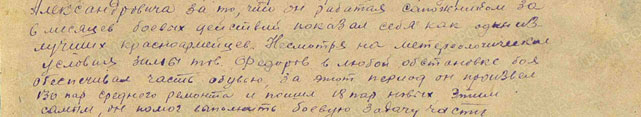 Александровича за то, что он работая сапожником за
6 месяцев боевых действий показал себя как один из
лучших красноармейцев. Несмотря на метеорологические
условия зимы тов. Федоров в любой обстановке боя
обеспечивал часть обувью, за этот период он произвел
130 пар среднего ремонта и пошил 18 пар новых. Этим
самым он помог выполнить боевую задачу части